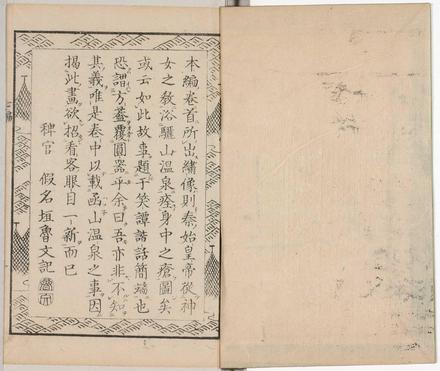 本編卷首所出繡像則秦始皇帝從神
女之教浴驪山温泉痊身中之瘡圖矣
或云如此故事題于笑譚諧話簡端也
恐謂方蓋覆圓器乎余曰吾亦非不知
其義唯是卷中以載函山温泉之事因
揭此畫欲招看客眼目一新而已
稗官 假名垣魯文記